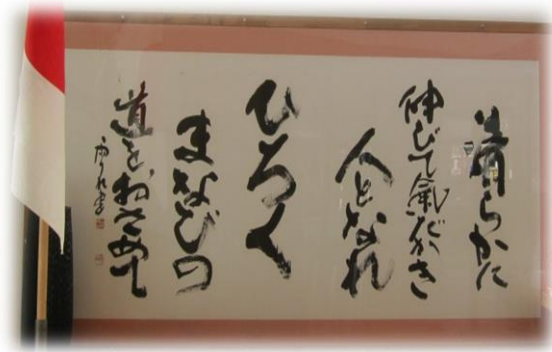 清らかに
伸びて氣だかき
人となれ
ひろく
まなびの
道をおさめて